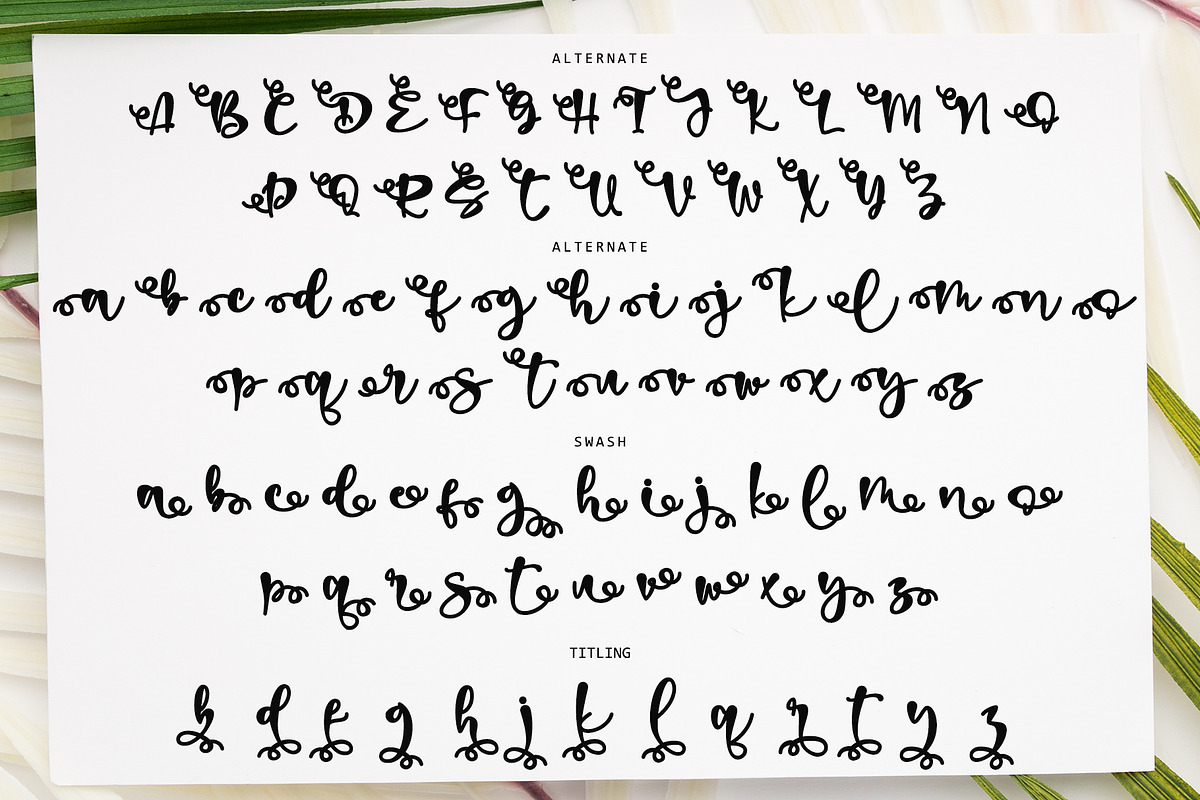 ALTERNATE
A B C D E F G H I J K L M N O
P Q R S T U V W X Y Z
ALTERNATE
a b c d e f g h i j k l m n o
p q r s t u v w x y z
SWASH
a b c d e f g h i j k l m n o
p q r s t u v w x y z
TITLING
b d f g h j k l q r t y z